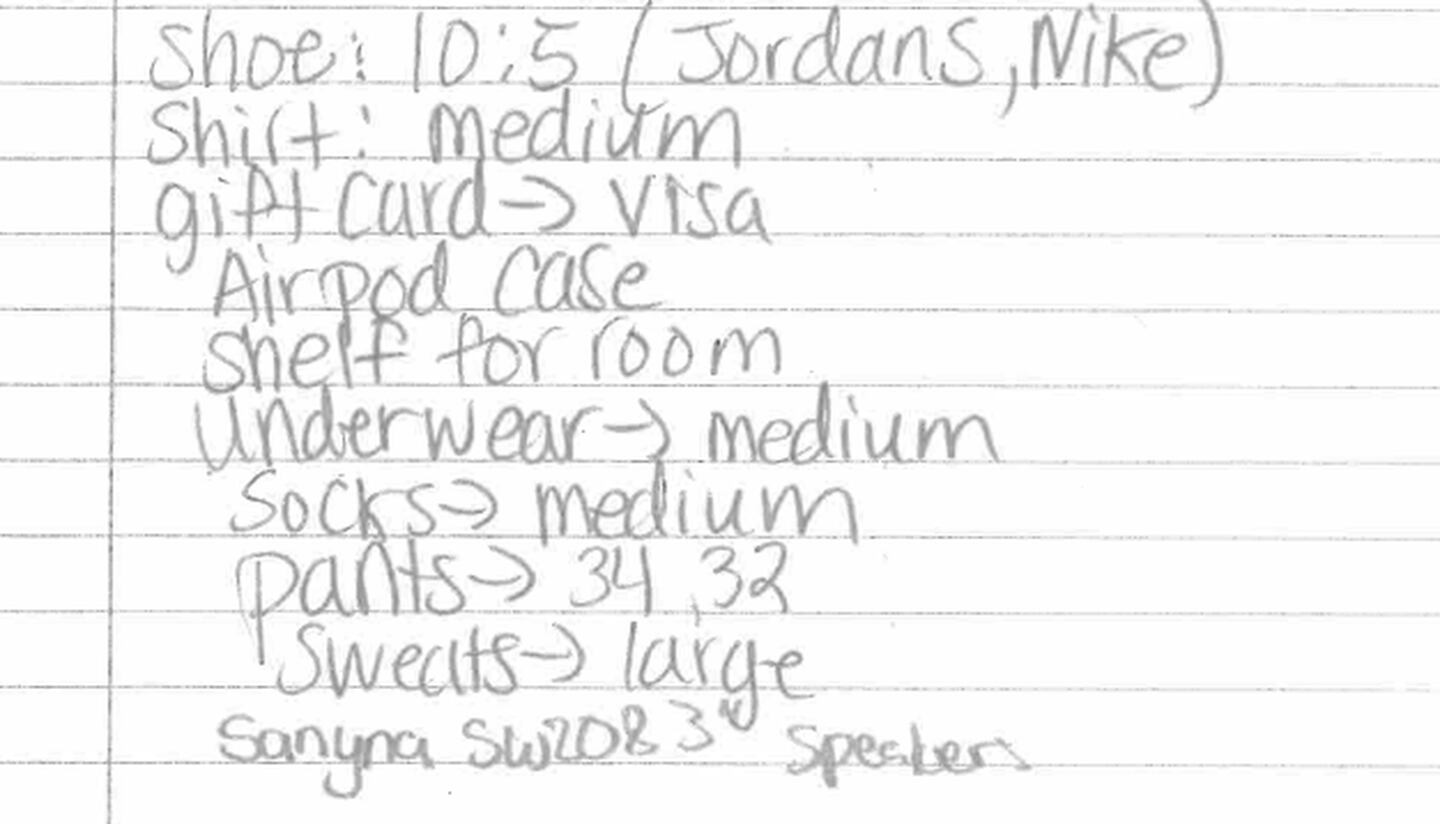 Shoe: 10:5 (Jordans, Nike)
Shirt: medium
gift card → visa
Airpod case
Shelf for room
Underwear → medium
Socks → medium
pants → 34, 32
Sweats → large
Sanyna SW208 3" Speakers